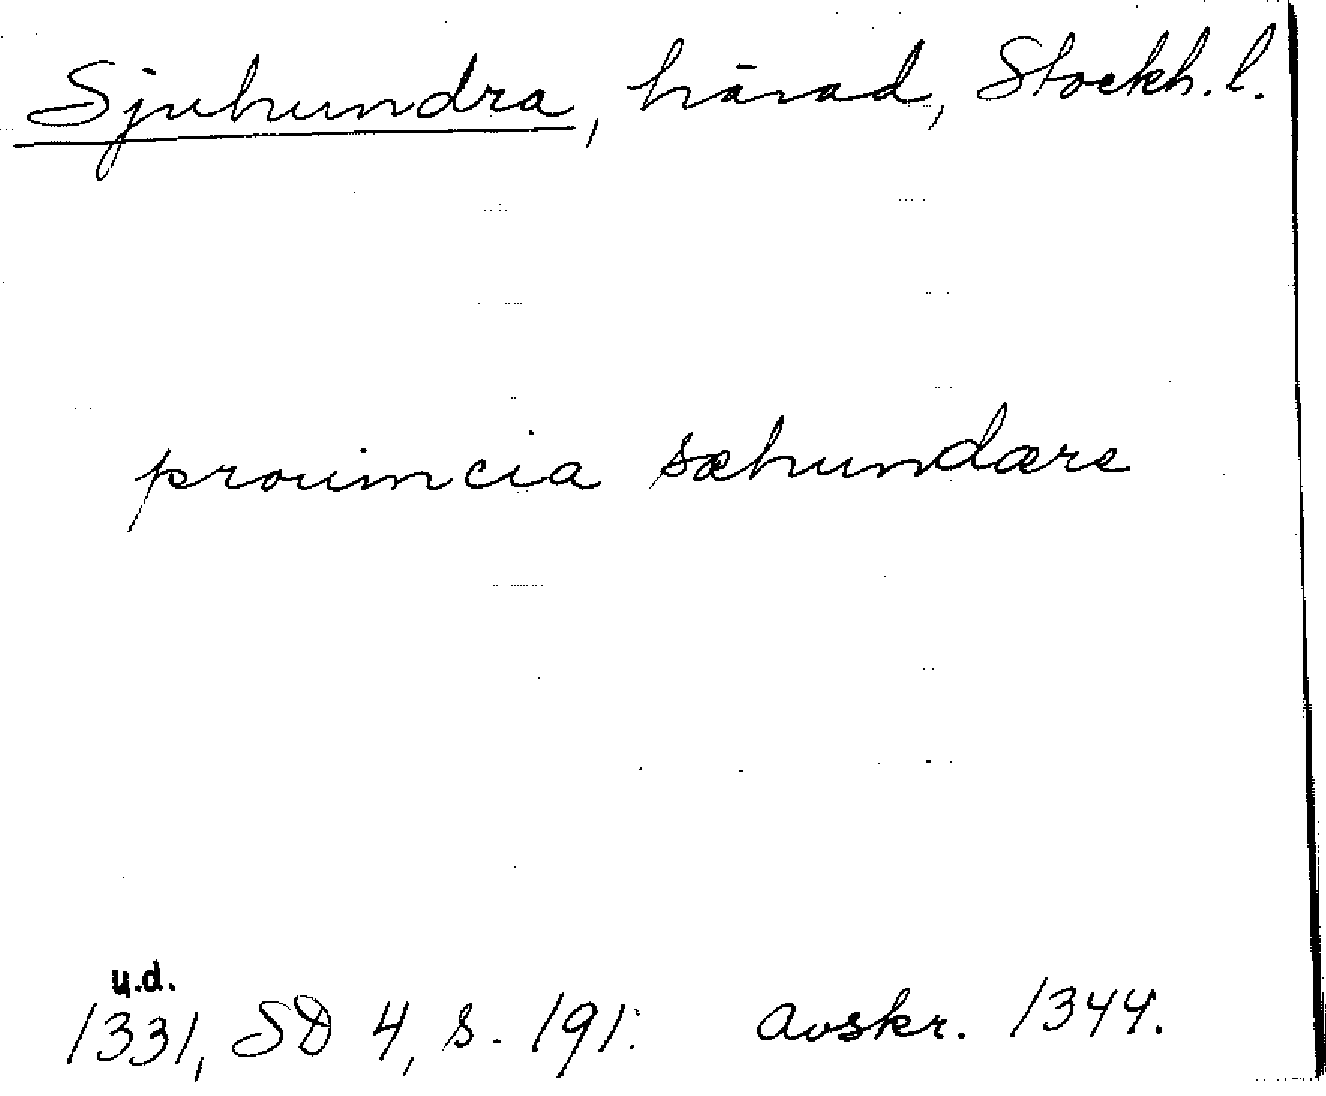 Sjuhundra, härad, Stockh. l.
prouincia sæhundære
u.d.
1331, SD 4, s. 191. Avskr. 1344.